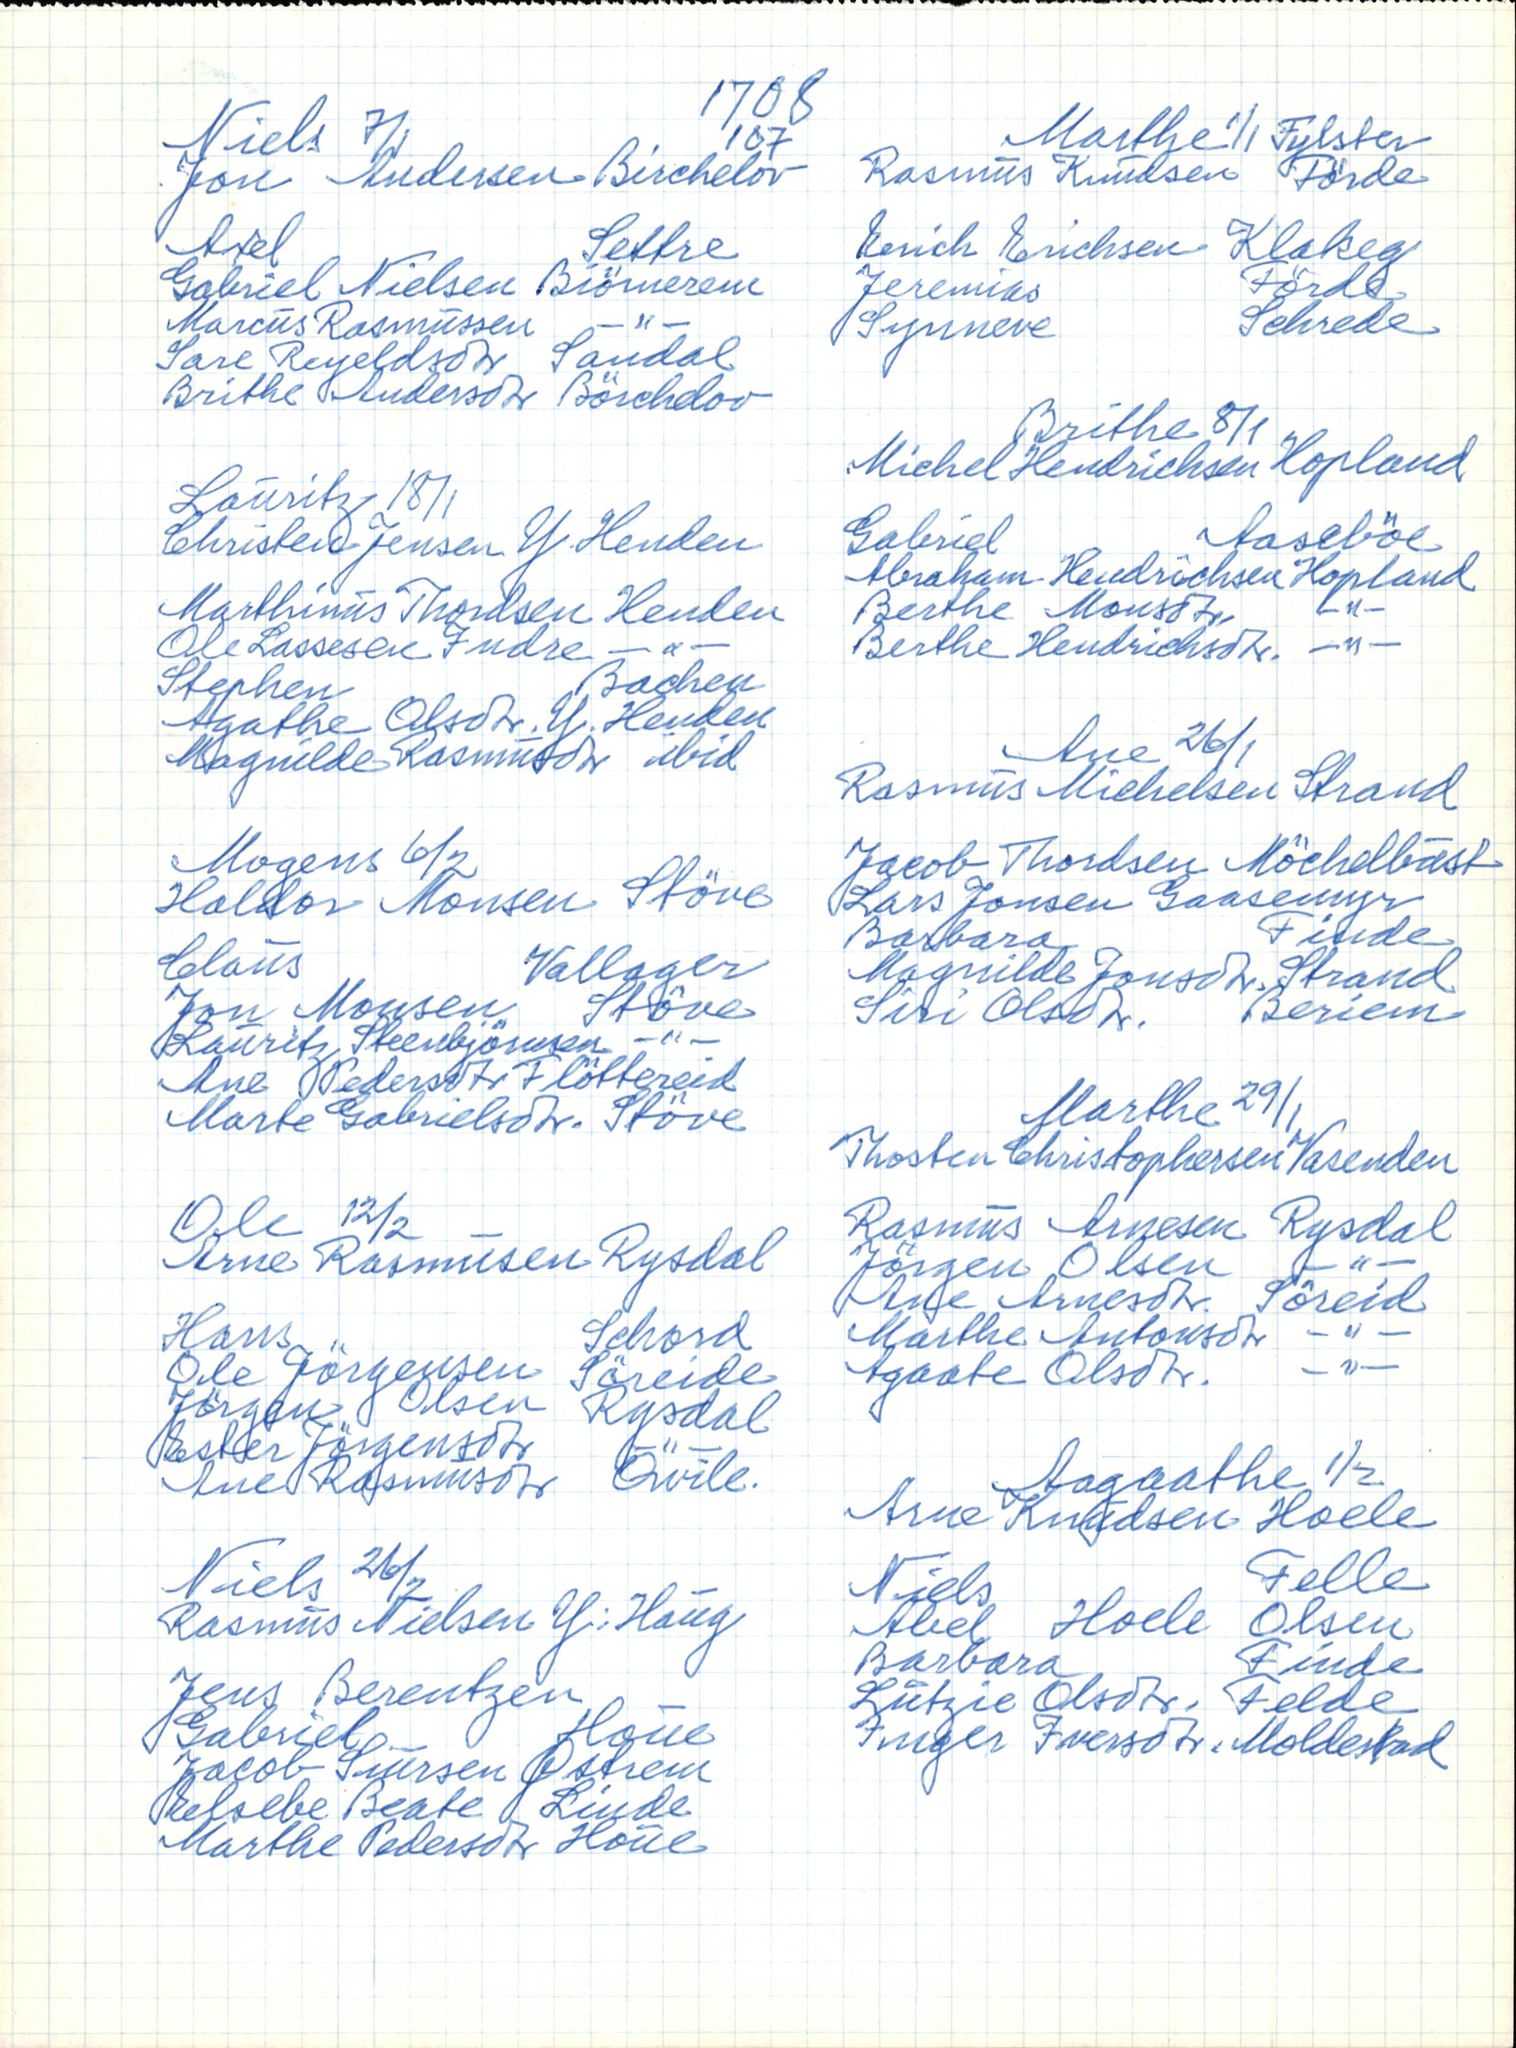 1708
107
Niels 7/1
Jon Andersen Birchelov
Axel Settre
Gabriel Nielsen Biörnerem
Marcus Rasmussen -"-
Sare Reyeldsdtr Sandal
Brithe Andersdtr Börchelov
Lauritz 18/1
Christen Jensen Y. Henden
Marthinus Thordsen Henden
Ole Lassesen Indre -"-
Stephen Bachen
Agathe Olsdtr. Y. Henden
Magnilde Rasmusdtr ibid
Mogens 6/2
Haldor Monsen Stöve
Claus Vallager
Jon Monsen Stöve
Lauritz Steenbjörnsen -"-
Ane Pedersdtr Flöttereid
Marte Gabrielsdtr. Stöve
Ole 12/2
Arne Rasmusen Rysdal
Hans Schord
Ole Jörgensen Söreide
Jörgen Olsen Rysdal
Ester Jörgensdtr -"-
Ane Rasmusdtr Qvile.
Niels 26/2
Rasmus Nielsen Y: Haug
Jens Berentzen
Gabriel Houe
Jacob Siursen Ostrem
Eelsebe Beate Linde
Marthe Pedersdtr Houe
Marthe 1/1 Fylster
Rasmus Knudsen Förde
Erich Erichsen Klakeg
Jeremias Förde
Synneve Schrede
Brithe 8/1
Michel Hendrichsen Hopland
Gabriel Aaseböe
Abraham Hendrichsen Hopland
Berthe Monsdtr. -"-
Berthe Hendrichsdtr. -"-
Ane 26/1
Rasmus Michelsen Strand
Jacob Thordsen Möchelbust
Lars Jonsen Gaasemyr
Barbara Finde
Magnilde Jonsdtr. Strand
Siri Olsdtr. Beriem
Marthe 29/1
Thosten Christophersen Vasenden
Rasmus Arnesen Rysdal
Jörgen Olsen -"-
Ane Arnesdtr. Söreid
Marthe Antonsdtr -"-
Agaate Olsdtr. -"-
Aagaathe 1/2
Arne Knudsen Hoele
Niels Felle
Abel Hoele Olsen
Barbara Finde
Lutzie Olsdtr. Felde
Inger Iversdtr. Moldestad